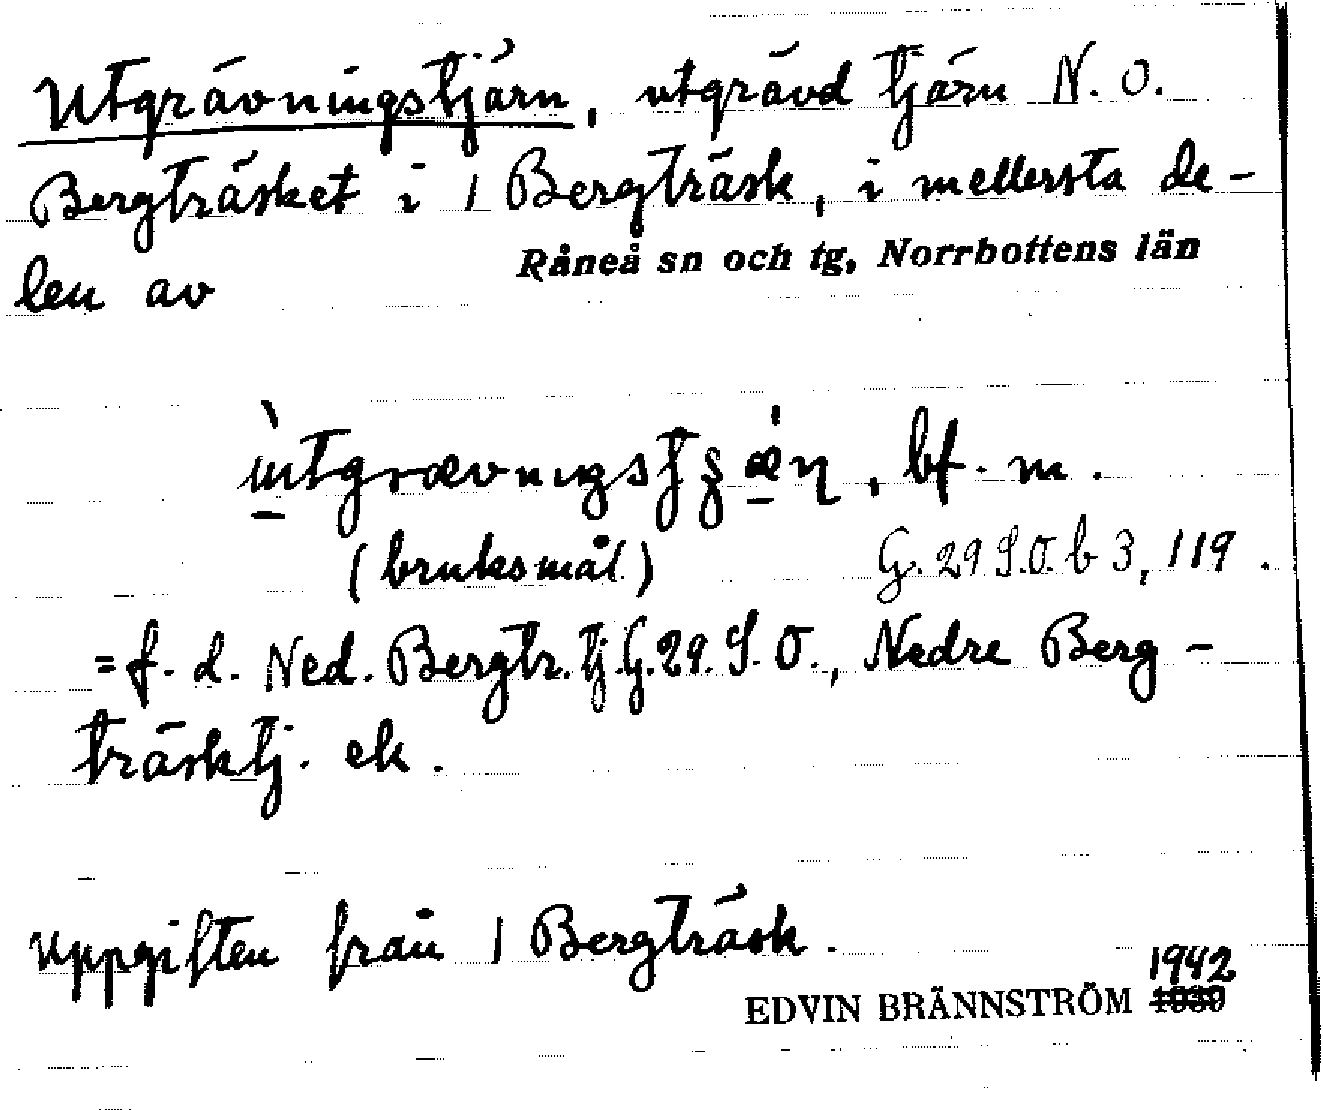 Utgrävningstjärn, utgrävd tjärn N. O.
Bergträsket i 1 Bergträsk, i mellersta de-
len av Råneå sn och tg, Norrbottens län
bf. m.
(bruksmål) G. 29 S.O. b 3, 119.
= f. d. Ned. Bergtr. tj. G. 29. S. O., Nedre Berg-
träsktj. ek.
Uppgiften från 1 Bergträsk.
1942
EDVIN BRÄNNSTRÖM 1939